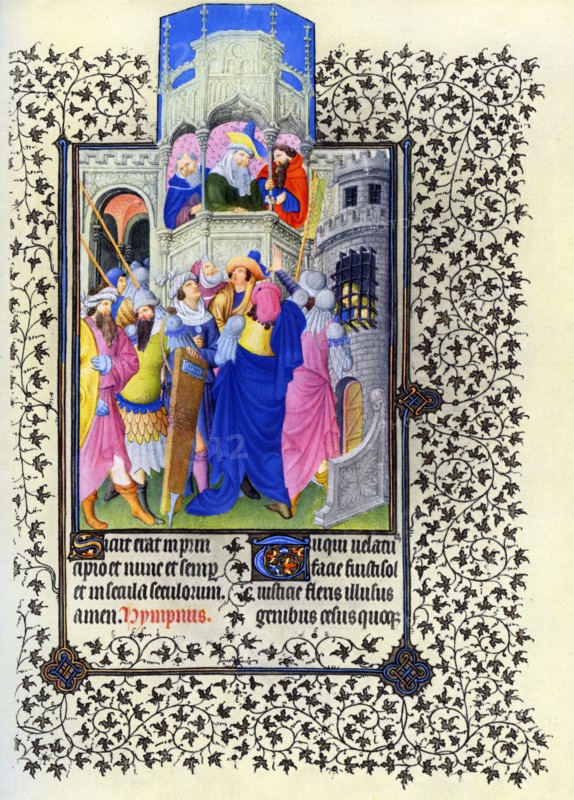 Sicut erat in prin
cipio et nunc et semp
et in secula seculorum.
amen. Hympnus.
Tu qui uelatus
facie fuisti sol
iusticie flexis illusus
genibus cesus quoq;